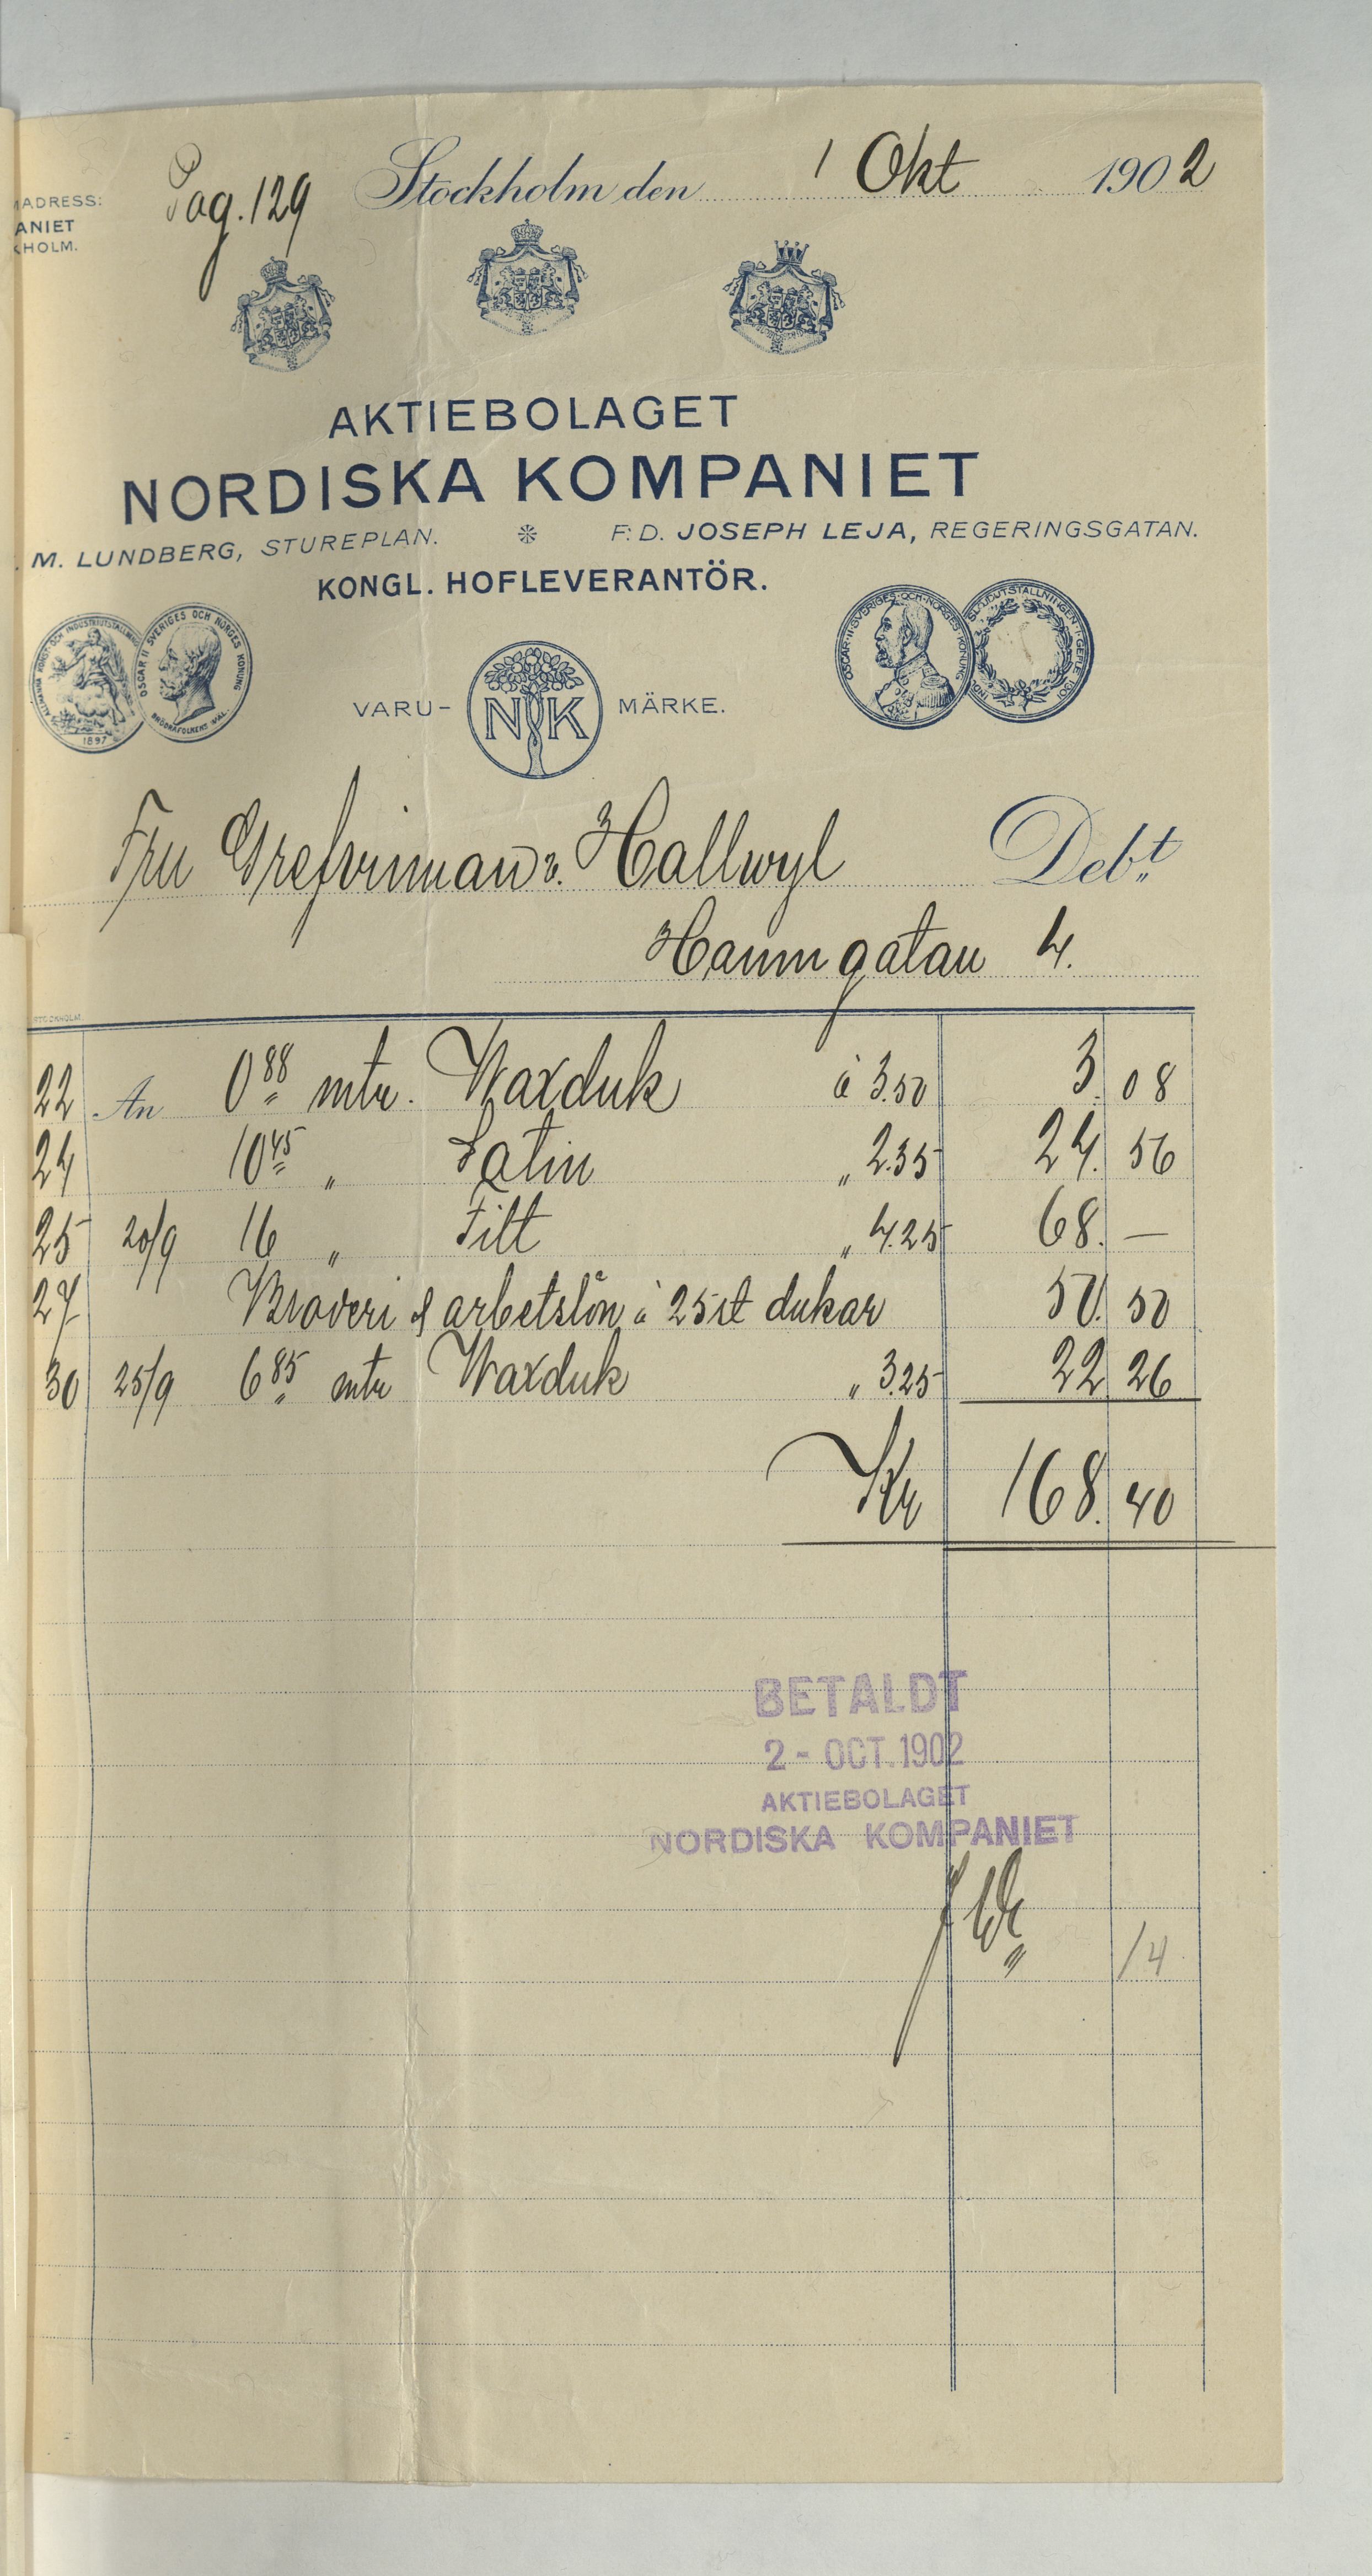 ADRESS:
ANIET
HOLM.
Pag. 129
Stockholm den 1 Okt 1902
AKTIEBOLAGET
NORDISKA KOMPANIET
M. LUNDBERG, STUREPLAN. F: D. JOSEPH LEJA, REGERINGSGATAN.
KONGL. HOFLEVERANTÖR.
ALLMÄNNA KONST- OCH INDUSTRIUTSTÄLLN
1897
OSCAR II SVERIGES OCH NORGES KONUNG
BRÖDRAFOLKENS VÄL
OSCAR II SVERIGES OCH NORGES KONUNG
SLÖJDUTSTÄLLNINGEN I GEFLE 1901
VARU- NK MÄRKE.
Fru Grefvinnan v. Hallwyl Debt
Hamngatan 4.
STOCKHOLM
22 An 0,88 mtr. Waxduk à 3.50 3.08
24 10,45 „ Satin „ 2.35 24.56
25 20/9 16 „ Filt „ 4.25 68.—
27 Broderi & arbetslön à 25 st dukar 50.50
30 25/9 6,85 mtr Waxduk „ 3.25 22 26
Kr 168.40
BETALDT
2 - OCT. 1902
AKTIEBOLAGET
NORDISKA KOMPANIET
14